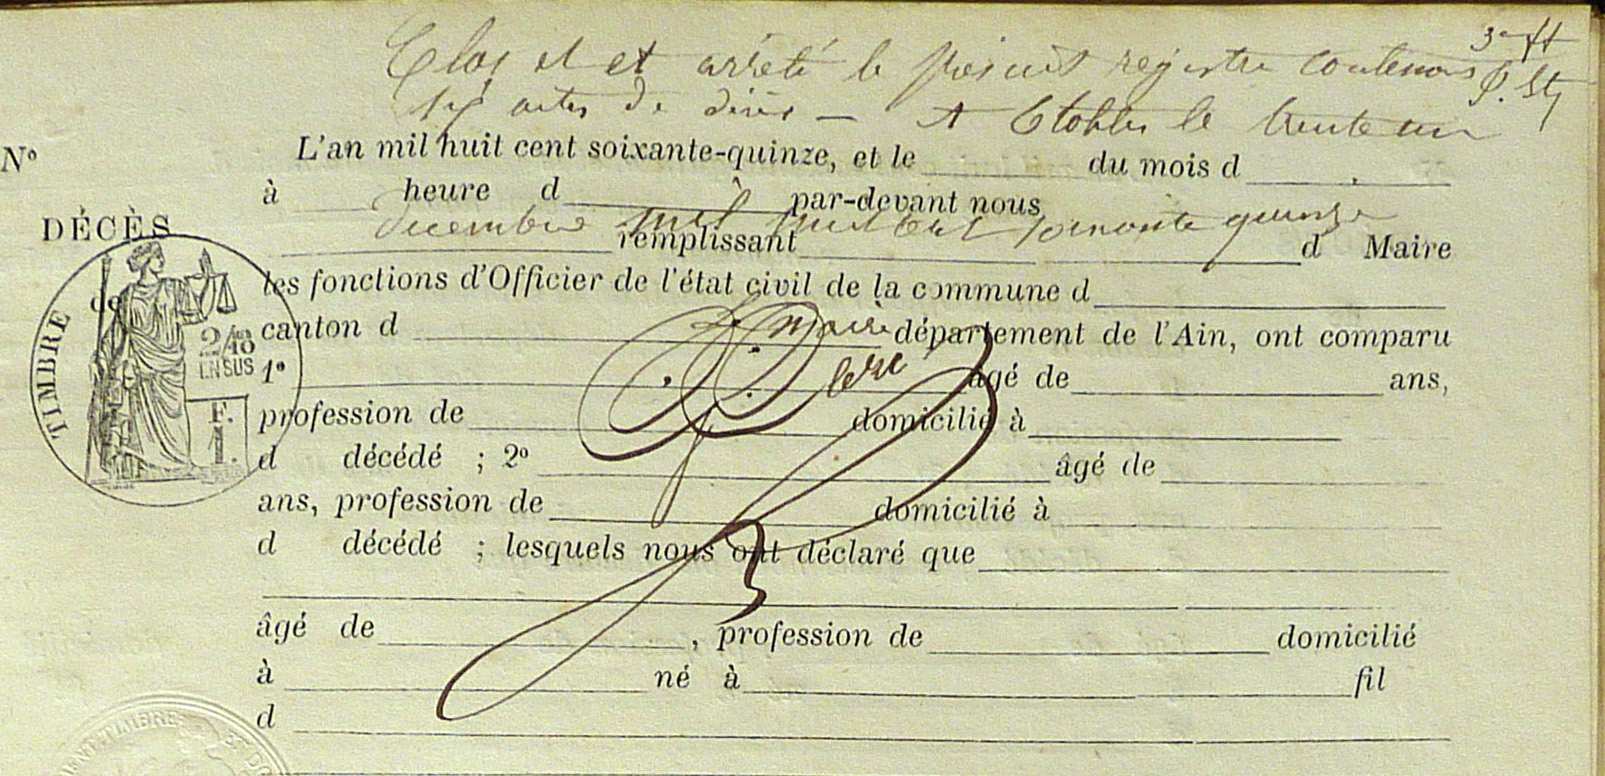 3e ft
Clos et et arrêté le présent registre contenant
actes de décès — A le trente un
N° L'an mil huit cent soixante-quinze, et le du mois d
à heure d par-devant nous
DÉCÈS
décembre mil huit cent soixante quinze
remplissant d Maire
de les fonctions d'Officier de l'état civil de la commune d
TIMBRE
2/10
EN SUS
F.
1.
canton d département de l'Ain, ont comparu
Le Maire
1° âgé de ans,
profession de domicilié à
d décédé ; 2° âgé de
ans, profession de domicilié à
d décédé ; lesquels nous ont déclaré que
âgé de , profession de domicilié
à né à fil
d